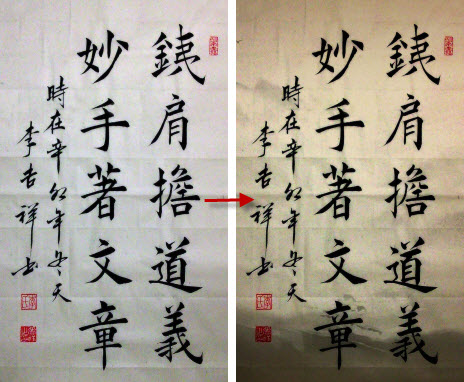 銕肩擔道義
妙手著文章
時在辛卯年冬天
李吉祥书
銕肩擔道義
妙手著文章
時在辛卯年冬天
李吉祥书